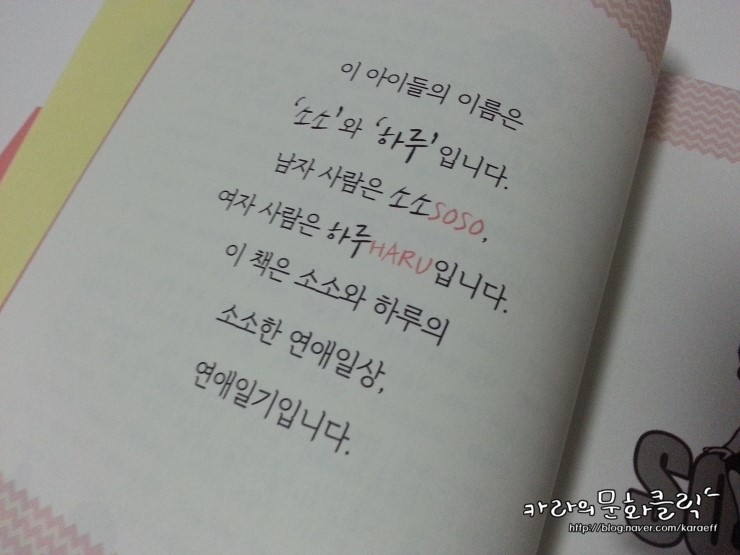 이 아이들의 이름은
'소소'와 '하루'입니다.
남자 사람은 소소SOSO,
여자 사람은 하루HARU입니다.
이 책은 소소와 하루의
소소한 연애일상,
연애일기입니다.
카라의문화클릭
http://blog.naver.com/karaeff